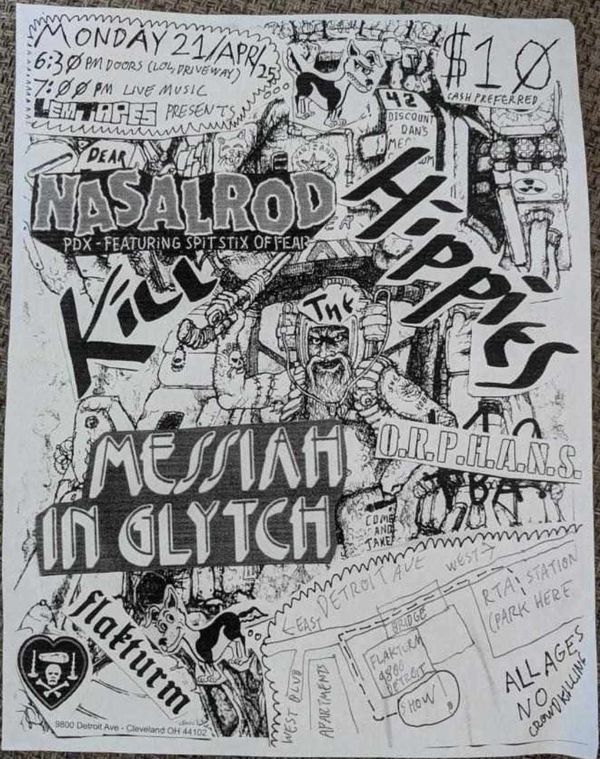 MONDAY 21/APR/25
6:30 PM DOORS (LOL, DRIVEWAY)
7:00 PM LIVE MUSIC
LEMTAPES PRESENTS
$10
CASH PREFERRED
42
DISCOUNT
DAN'S
DEAR
NASALROD
PDX - FEATURING SPIT STIX OF FEAR
KILL
THE
HIPPIES
MESSIAH
IN GLYTCH
O.R.P.H.A.N.S.
COME
AND
TAKE
flakturm
9800 Detroit Ave - Cleveland OH 44102
← EAST DETROIT AVE WEST →
BRIDGE
RTA STATION
(PARK HERE
FLAKTURM
9800
DETROIT
SHOW!
WEST BLVD
APARTMENTS
ALL AGES
NO
CROWDKILLING